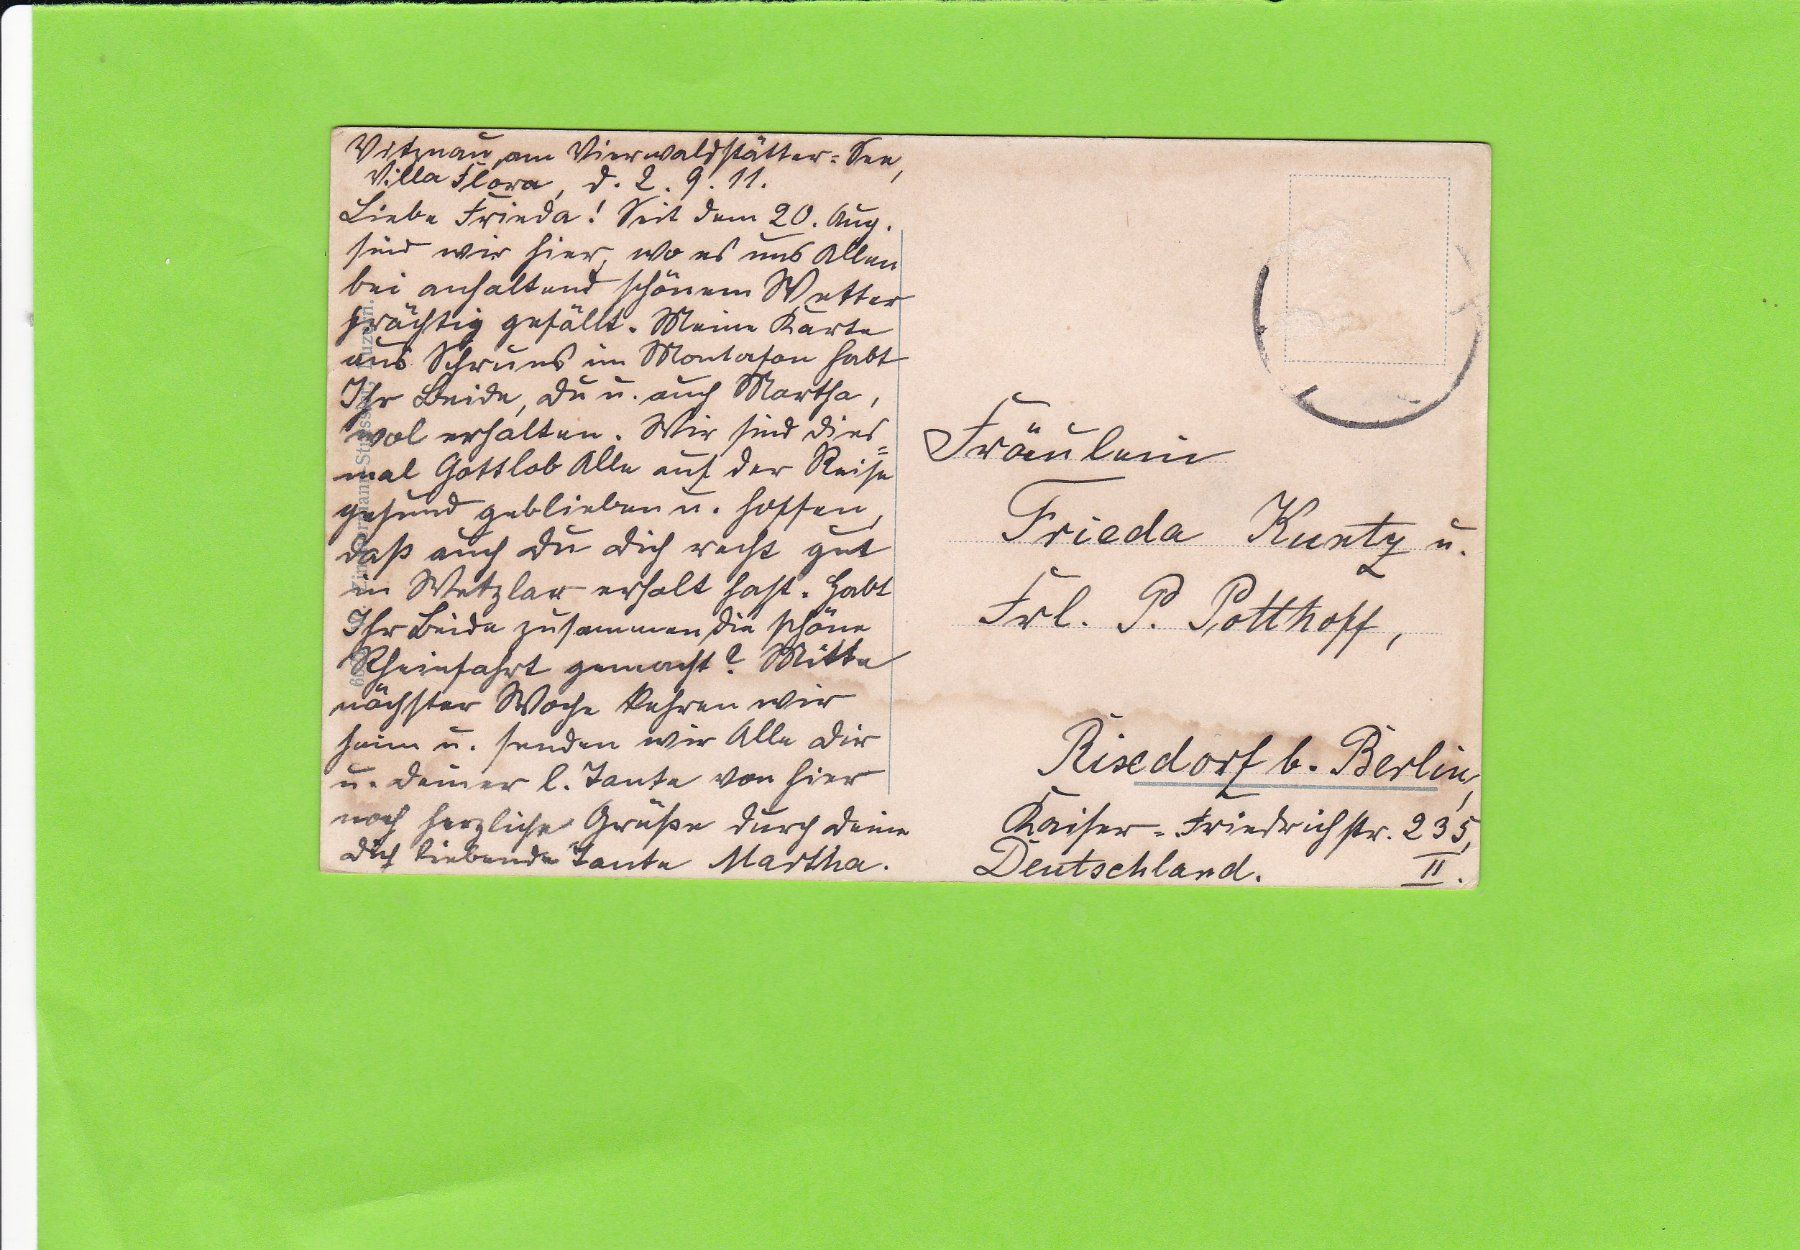 Vitznau, am Vierwaldstätter-See,
Villa Flora, d. 2. 9. 11.
Liebe Frieda! Seit dem 20. Aug.
sind wir hier, wo es uns Allen
bei anhaltend schönem Wetter
prächtig gefällt. Meine Karte
aus Schruns im Montafon habt
Ihr Beide, Du u. auch Martha,
wol erhalten. Wir sind dies=
mal Gottlob Alle auf der Reise
gesund geblieben u. hoffen,
daß auch Du Dich recht gut
in Wetzlar erholt hast. Habt
Ihr Beide zusammen die schöne
Rheinfahrt gemacht? Mitte
nächster Woche kehren wir
heim u. senden wir Alle Dir
u. Deiner l. Tante von hier
noch herzliche Grüße durch Deine
Dich liebende Tante Martha.
Fräulein
Frieda Kuntz u.
Frl. P. Potthoff,
Rixdorf b. Berlin,
Kaiser-Friedrichstr. 235,
II.
Deutschland.